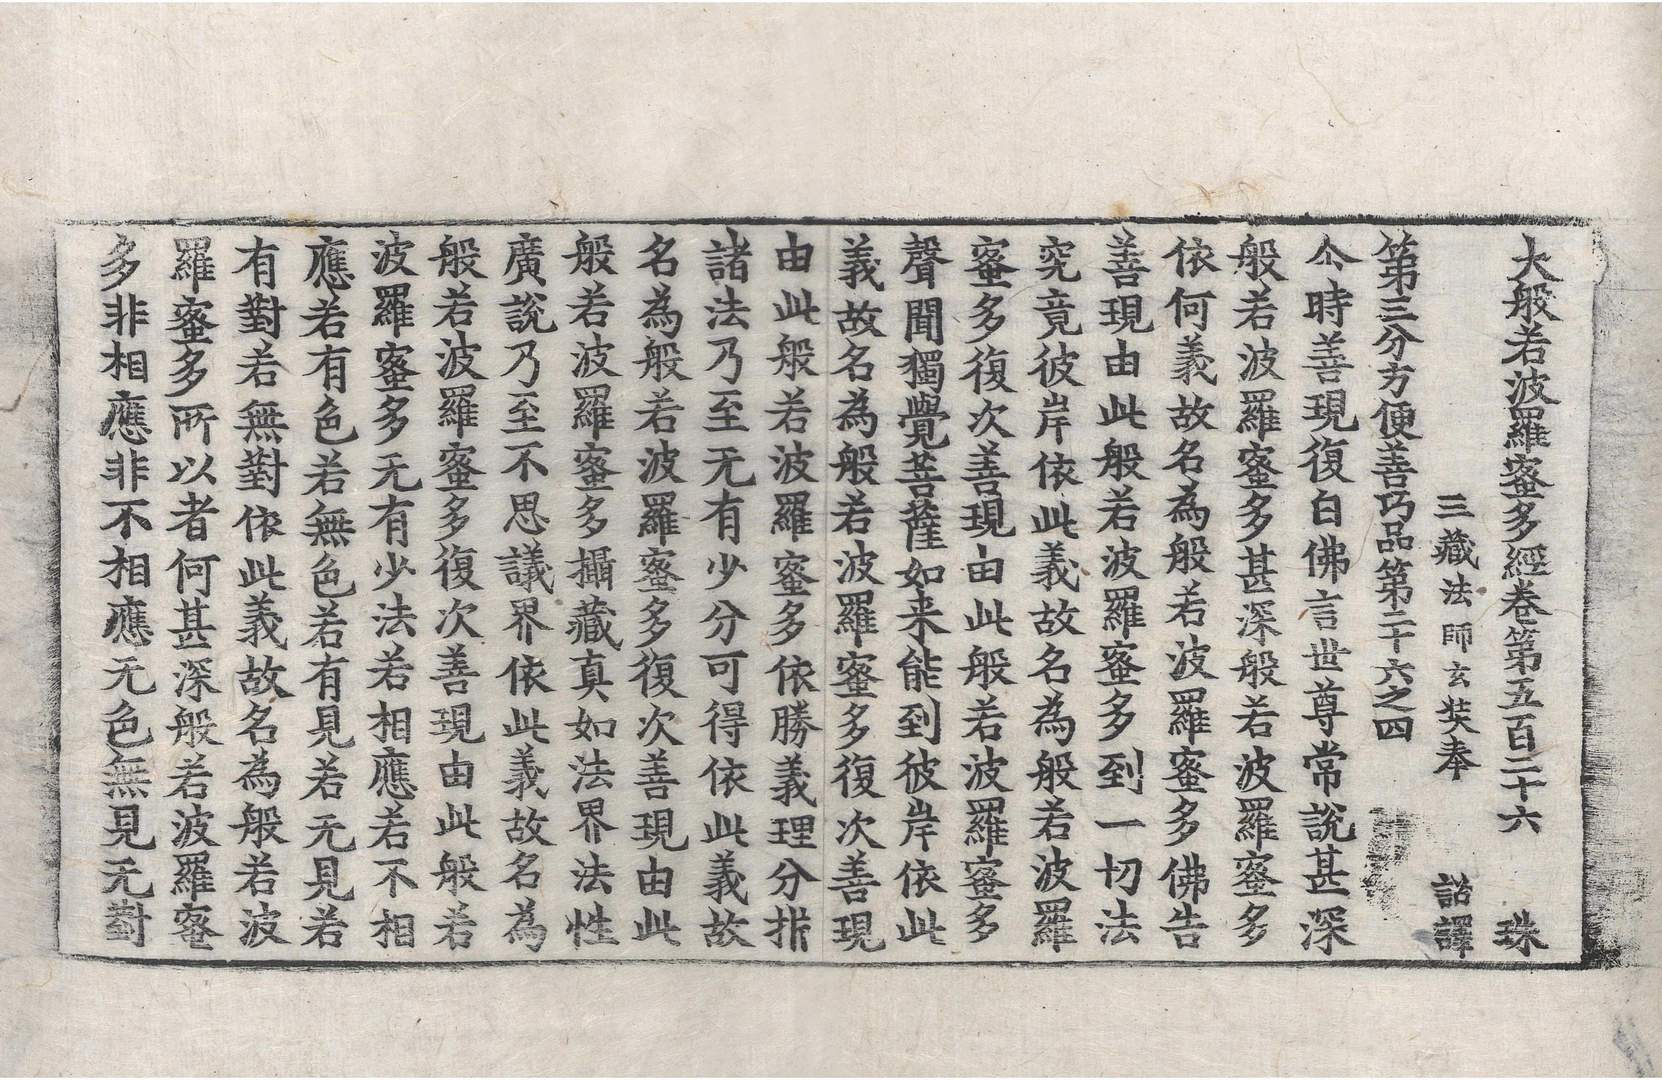 大般若波羅蜜多經卷第五百二十六　珠
三藏法師玄奘奉　詔譯
第三分方便善巧品第二十六之四
尒時善現復白佛言世尊常說甚深
般若波羅蜜多甚深般若波羅蜜多
依何義故名為般若波羅蜜多佛告
善現由此般若波羅蜜多到一切法
究竟彼岸依此義故名為般若波羅
蜜多復次善現由此般若波羅蜜多
聲聞獨覺菩薩如来能到彼岸依此
義故名為般若波羅蜜多復次善現
由此般若波羅蜜多依勝義理分析
諸法乃至无有少分可得依此義故
名為般若波羅蜜多復次善現由此
般若波羅蜜多攝藏真如法界法性
廣說乃至不思議界依此義故名為
般若波羅蜜多復次善現由此般若
波羅蜜多无有少法若相應若不相
應若有色若無色若有見若无見若
有對若無對依此義故名為般若波
羅蜜多所以者何甚深般若波羅蜜
多非相應非不相應无色無見无對